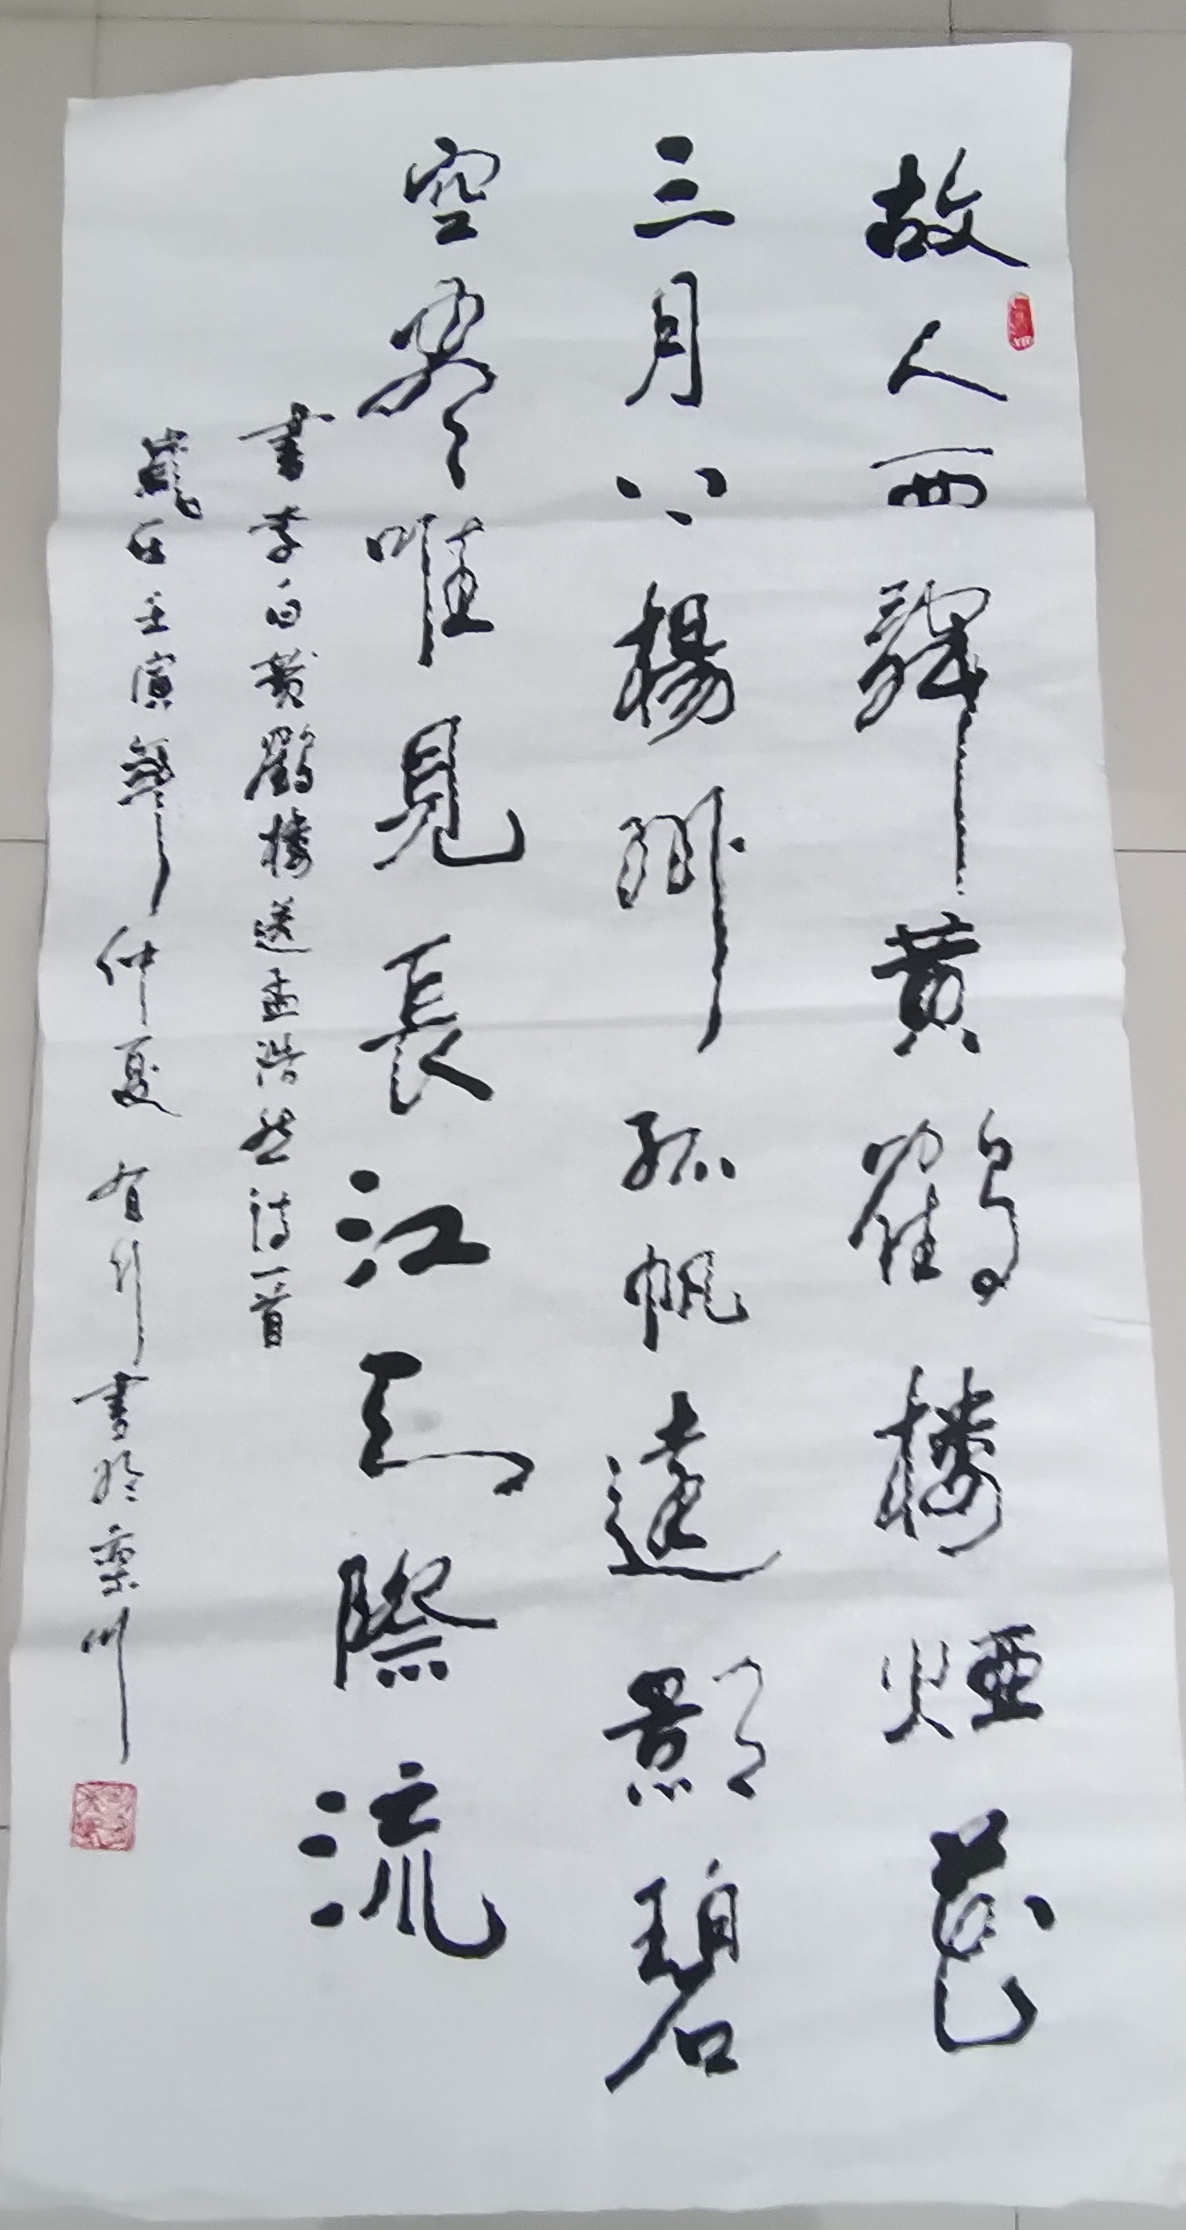 故人西辭黄鶴樓煙花
三月下揚州孤帆遠影碧
空盡唯見長江天際流
書李白黄鶴樓送孟浩然詩一首
歲在壬寅年仲夏有書於欒川